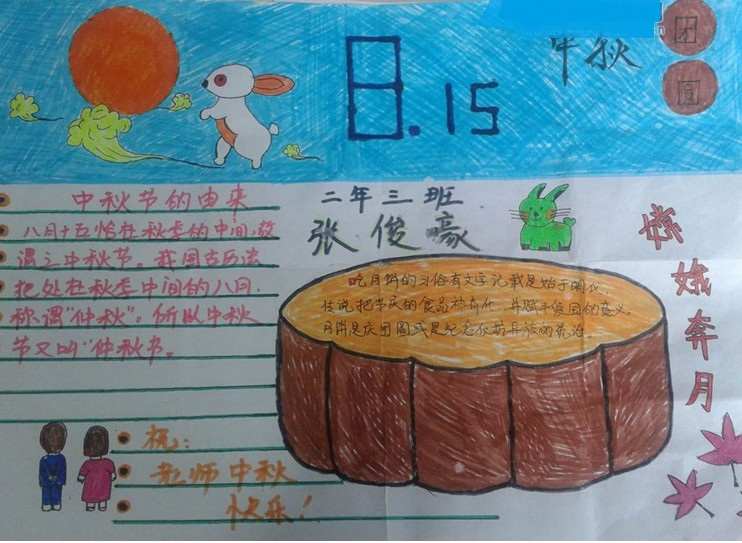 8.15
中秋
团
圆
中秋节的由来
八月十五恰在秋季的中间,故
谓之中秋节。我国古历法
把处在秋季中间的八月,
称谓“仲秋”,所以中秋
节又叫“仲秋节。
二年三班
张俊嚎
吃月饼的习俗有文字记载是始于明代,
传说把节庆的食品 的意义。
月饼是庆团圆或是纪念
嫦娥奔月
祝:
老师中秋
快乐!